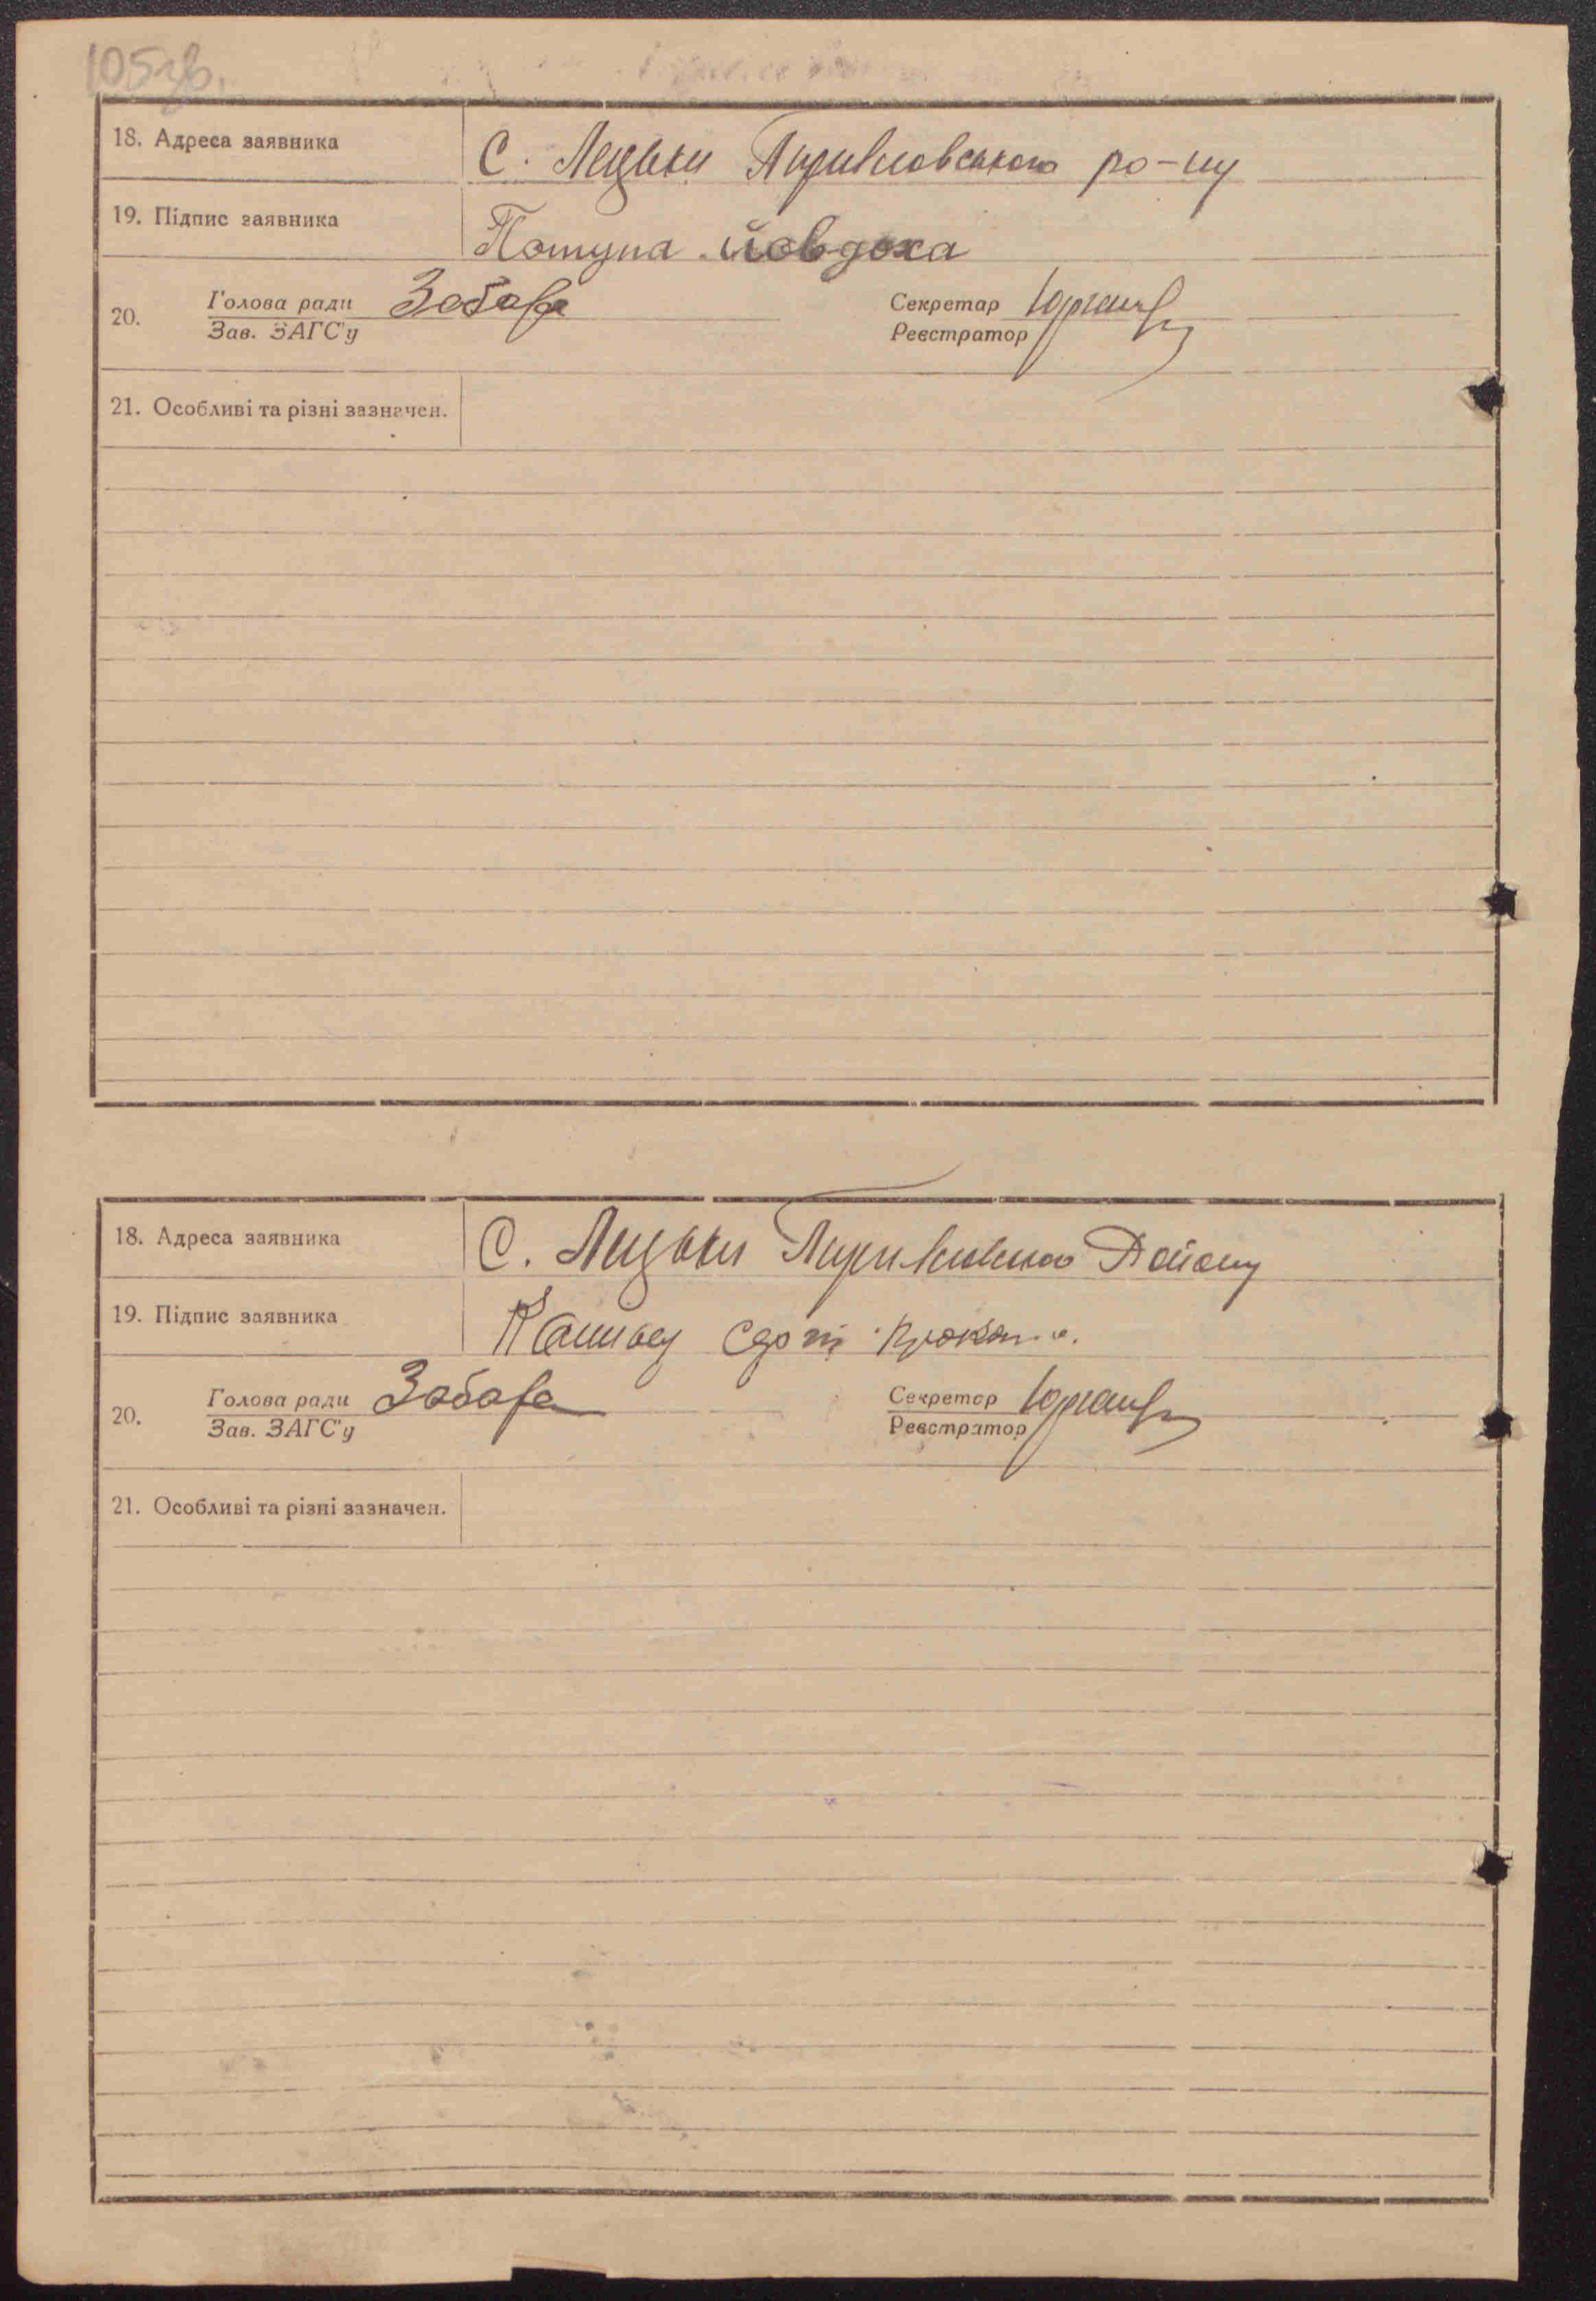 105зв.
18. Адреса заявника С. Лецьки Пирятиовського ро-ну
19. Підпис заявника Потупа Йовдоха
20. Голова ради Забара Секретар
Зав. ЗАГС'у Реєстратор
21. Особливі та різні зазначен.
18. Адреса заявника С. Лецьки Району
19. Підпис заявника
20. Голова ради Забара Секретар
Зав. ЗАГС'у Реєстратор
21. Особливі та різні зазначен.